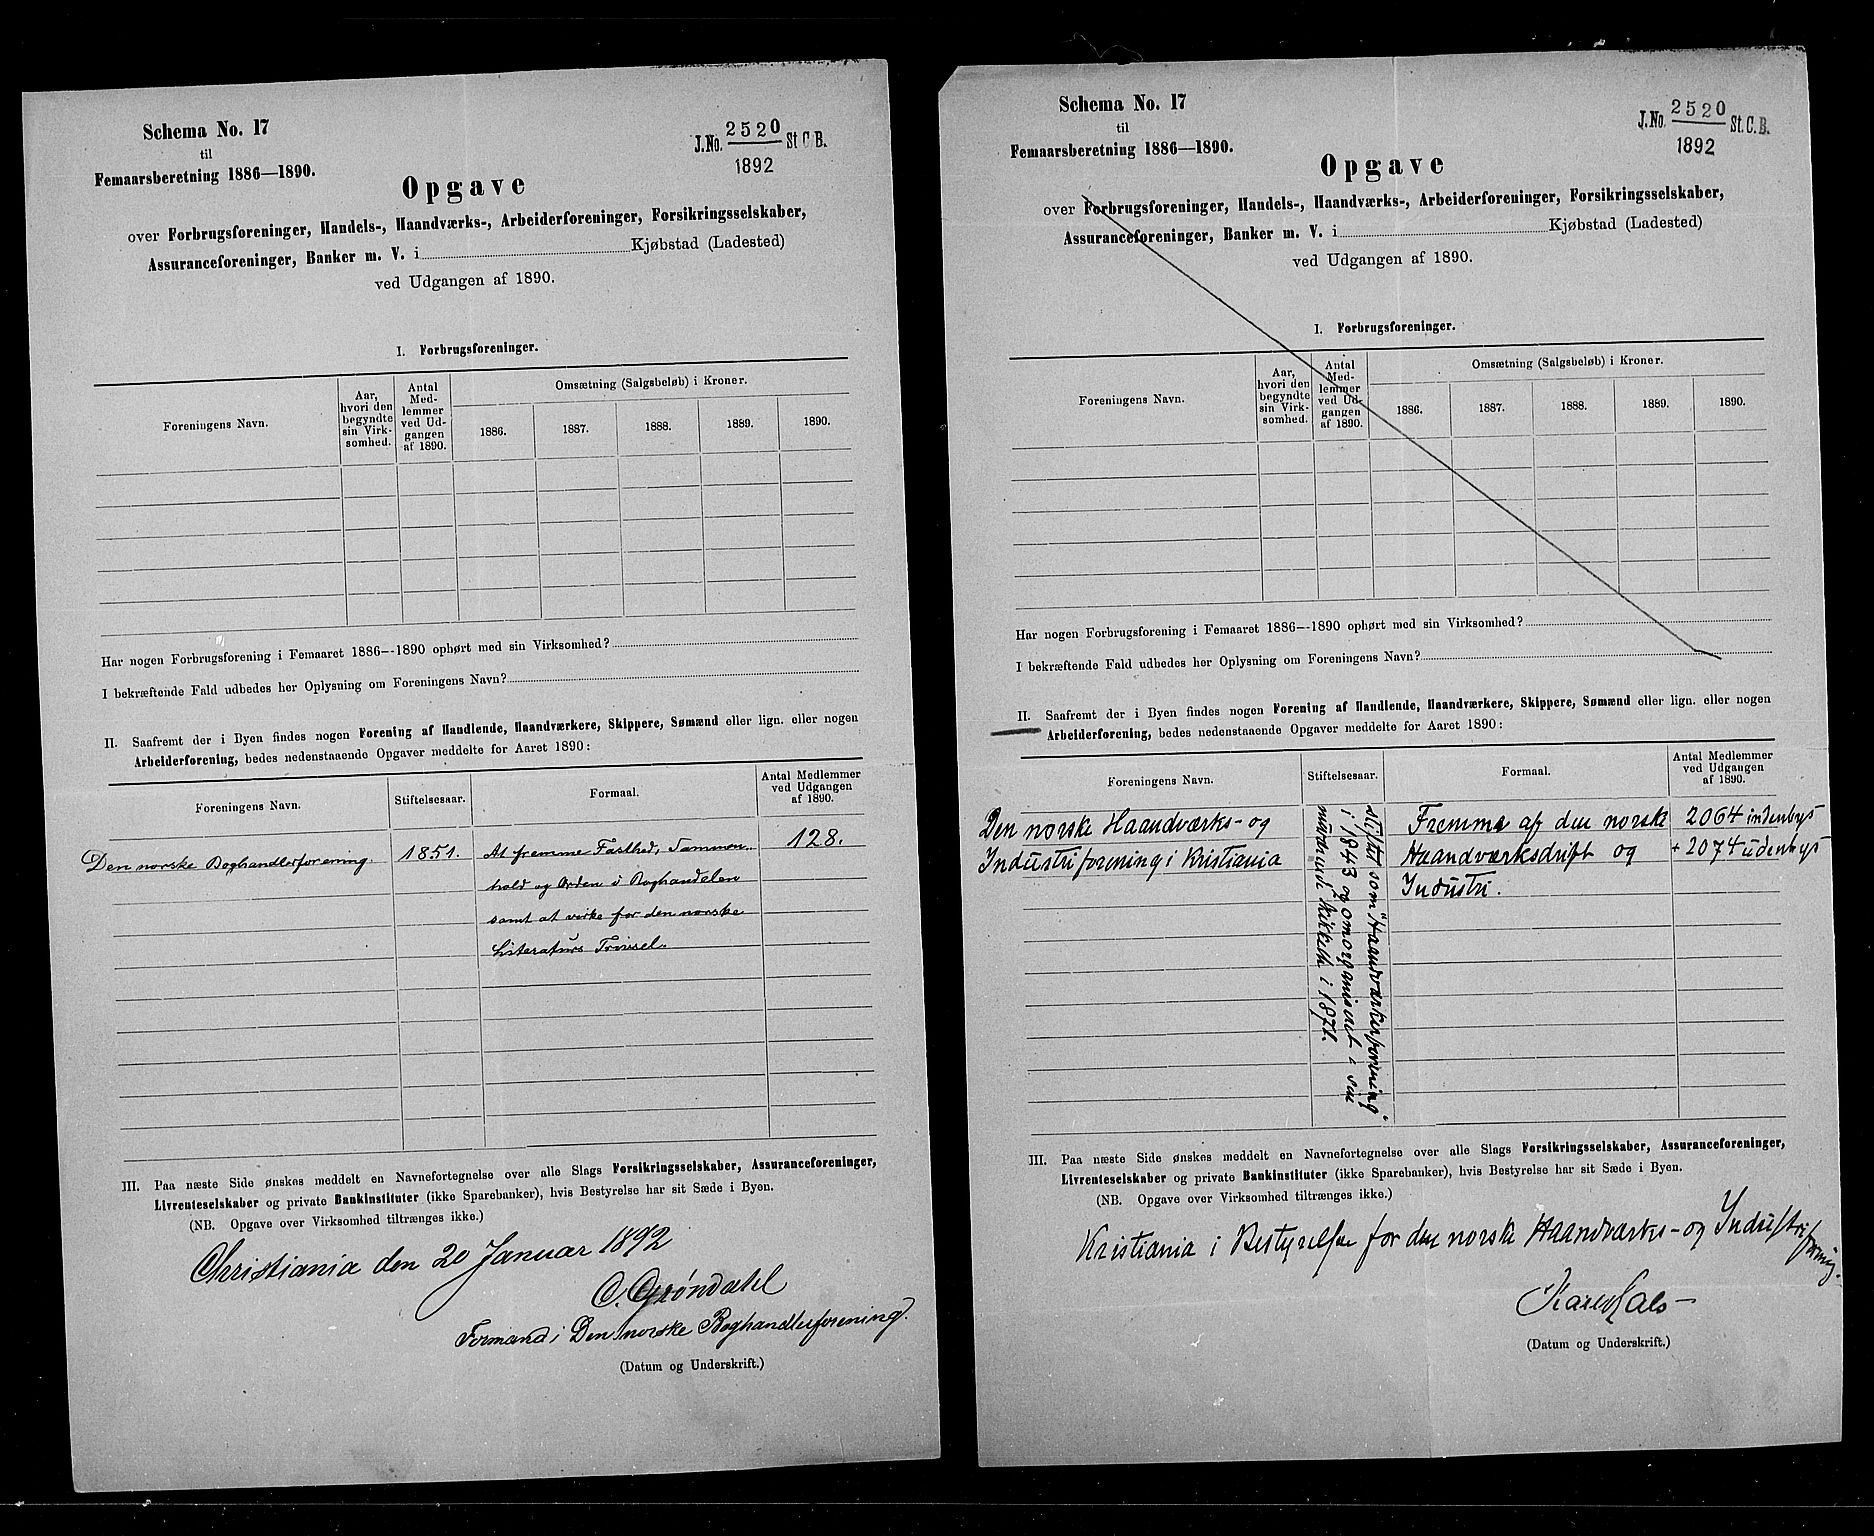 Schema No. 17
til
Femaarsberetning 1886—1890.
J.No. 2520 St.C.B.
1892
Opgave
over Forbrugsforeninger, Handels-, Haandværks-, Arbeiderforeninger, Forsikringsselskaber,
Assuranceforeninger, Banker m. V. i Kjøbstad (Ladested)
ved Udgangen af 1890.
I. Forbrugsforeninger.
Foreningens Navn.
Aar, hvori den begyndte sin Virk-somhed.
Antal Med-lemmer ved Ud-gangen af 1890.
Omsætning (Salgsbeløb) i Kroner.
1886. 1887. 1888. 1889. 1890.
Har nogen Forbrugsforening i Femaaret 1886—1890 ophørt med sin Virksomhed?
I bekræftende Fald udbedes her Oplysning om Foreningens Navn?
II. Saafremt der i Byen findes nogen Forening af Handlende, Haandværkere, Skippere, Sømænd eller lign. eller nogen
Arbeiderforening, bedes nedenstaaende Opgaver meddelte for Aaret 1890:
Foreningens Navn. Stiftelsesaar. Formaal. Antal Medlemmer
ved Udgangen
af 1890.
Den norske Boghandlerforening. 1851. At fremme Fasthed, Sammen- 128.
hold og Orden i Boghandelen
samt at virke for den norske
Literaturs Trivsel.
III. Paa næste Side ønskes meddelt en Navnefortegnelse over alle Slags Forsikringsselskaber, Assuranceforeninger,
Livrenteselskaber og private Bankinstituter (ikke Sparebanker), hvis Bestyrelse har sit Sæde i Byen.
(NB. Opgave over Virksomhed tiltrænges ikke.)
Christiania den 20 Januar 1892
C. Grøndahl
Formand i Den norske Boghandlerforening.
(Datum og Underskrift.)
Schema No. 17
til
Femaarsberetning 1886—1890.
J.No. 2520 St.C.B.
1892
Opgave
over Forbrugsforeninger, Handels-, Haandværks-, Arbeiderforeninger, Forsikringsselskaber,
Assuranceforeninger, Banker m. V. i Kjøbstad (Ladested)
ved Udgangen af 1890.
I. Forbrugsforeninger.
Foreningens Navn.
Aar, hvori den begyndte sin Virk-somhed.
Antal Med-lemmer ved Ud-gangen af 1890.
Omsætning (Salgsbeløb) i Kroner.
1886. 1887. 1888. 1889. 1890.
Har nogen Forbrugsforening i Femaaret 1886—1890 ophørt med sin Virksomhed?
I bekræftende Fald udbedes her Oplysning om Foreningens Navn?
II. Saafremt der i Byen findes nogen Forening af Handlende, Haandværkere, Skippere, Sømænd eller lign. eller nogen
Arbeiderforening, bedes nedenstaaende Opgaver meddelte for Aaret 1890:
Foreningens Navn. Stiftelsesaar. Formaal. Antal Medlemmer
ved Udgangen
af 1890.
Den norske Haandværks- og Fremme af den norske 2064 indenbys
Industriforening i Kristiania Haandværksdrift og + 2074 udenbys
Industri.
stiftet som "Haandværkerforening"
i 1843 og omorganiseret i sin
nuværende Skikkelse i 1871.
III. Paa næste Side ønskes meddelt en Navnefortegnelse over alle Slags Forsikringsselskaber, Assuranceforeninger,
Livrenteselskaber og private Bankinstituter (ikke Sparebanker), hvis Bestyrelse har sit Sæde i Byen.
(NB. Opgave over Virksomhed tiltrænges ikke.)
Kristiania i Bestyrelsen for den norske Haandværks- og Industriforening.
Karl Hals
(Datum og Underskrift.)